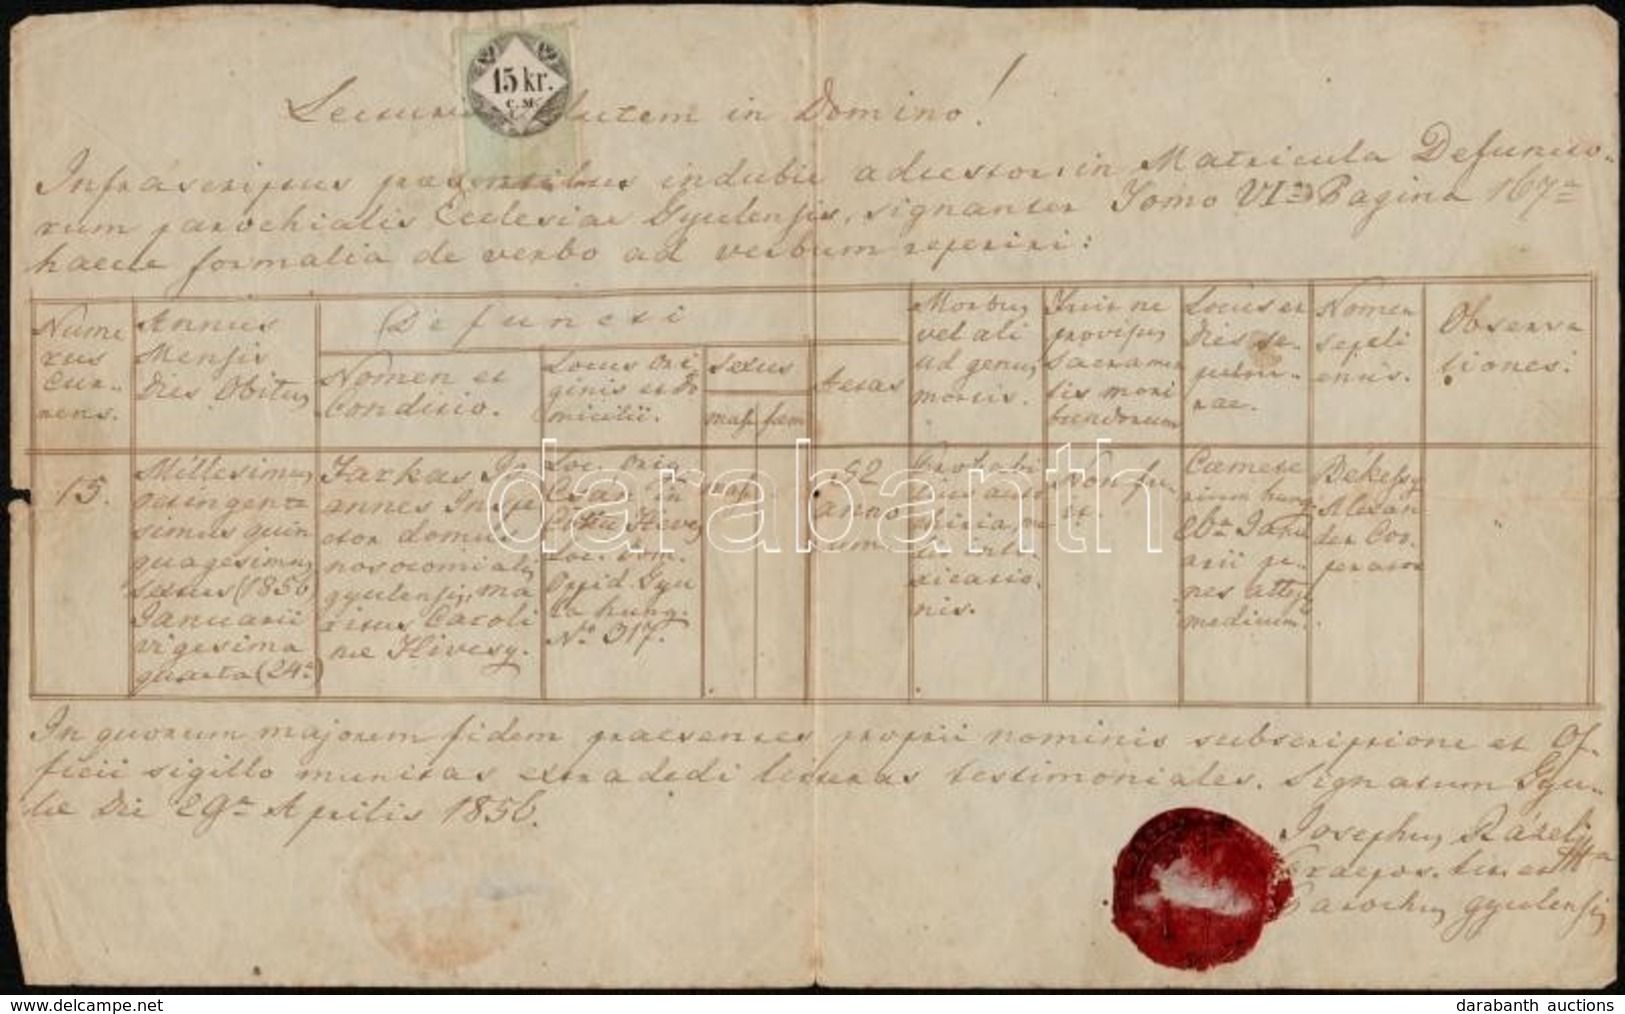 15 kr.
C.M.
in Domino!
Infrascriptus praesentibus indubie adtestor in Matricula Defuncto-
rum parochialis Ecclesiae Gyulensis, signanter Tomo VI Pagina 167a
haece formalia de verbo ad verbum reperiri:
Nume
rus
Cur-
rens.
Annus
Mensis
Dies Obitus
Defuncti
Nomen et
Conditio.
Locus Ori
ginis et do
micilii.
Sexus
mas.
fem
Aetas
Morbus
vel ali
ud genus
mortis.
Fuit ne
provisus
Sacramen
tis mori
bundorum
Locus et
Dies se-
pultu-
rae.
Nomen
sepeli
entis.
Observa
tiones.
15.
Millesimus
octingente
simus quin
quagesimus
sextus (1856)
Januarii
vigesima
quarta (24a)
Farkas Jo
annes Inspe
ctor domus
nosocomialis
gyulensis, ma
ritus Caroli
nae Hivesy.
Loc. orig.
Csát in
Cottu Heves
Loc. Dom.
Oppid. Gyu
la hung.
No 317.
mas.
52
anno
rum.
Probabi
lius auto
chiria, 
 into
xicatio
nis.
Non fu-
it.
Coemete
rium hung.
 Janu
arii pe
nes attes
medicum.
Békessy
Alexan
der Coo
perator
"
In quorum majorem fidem praesentes proprii nominis subscriptione et Of-
ficii sigillo munitas extradedi literas testimoniales. Signatum Gyu-
lae Die 29a Aprilis 1856.
Josephus
Praepos. 
Parochus gyulensis
darabanth
www.darabanth.com
darabanth auctions